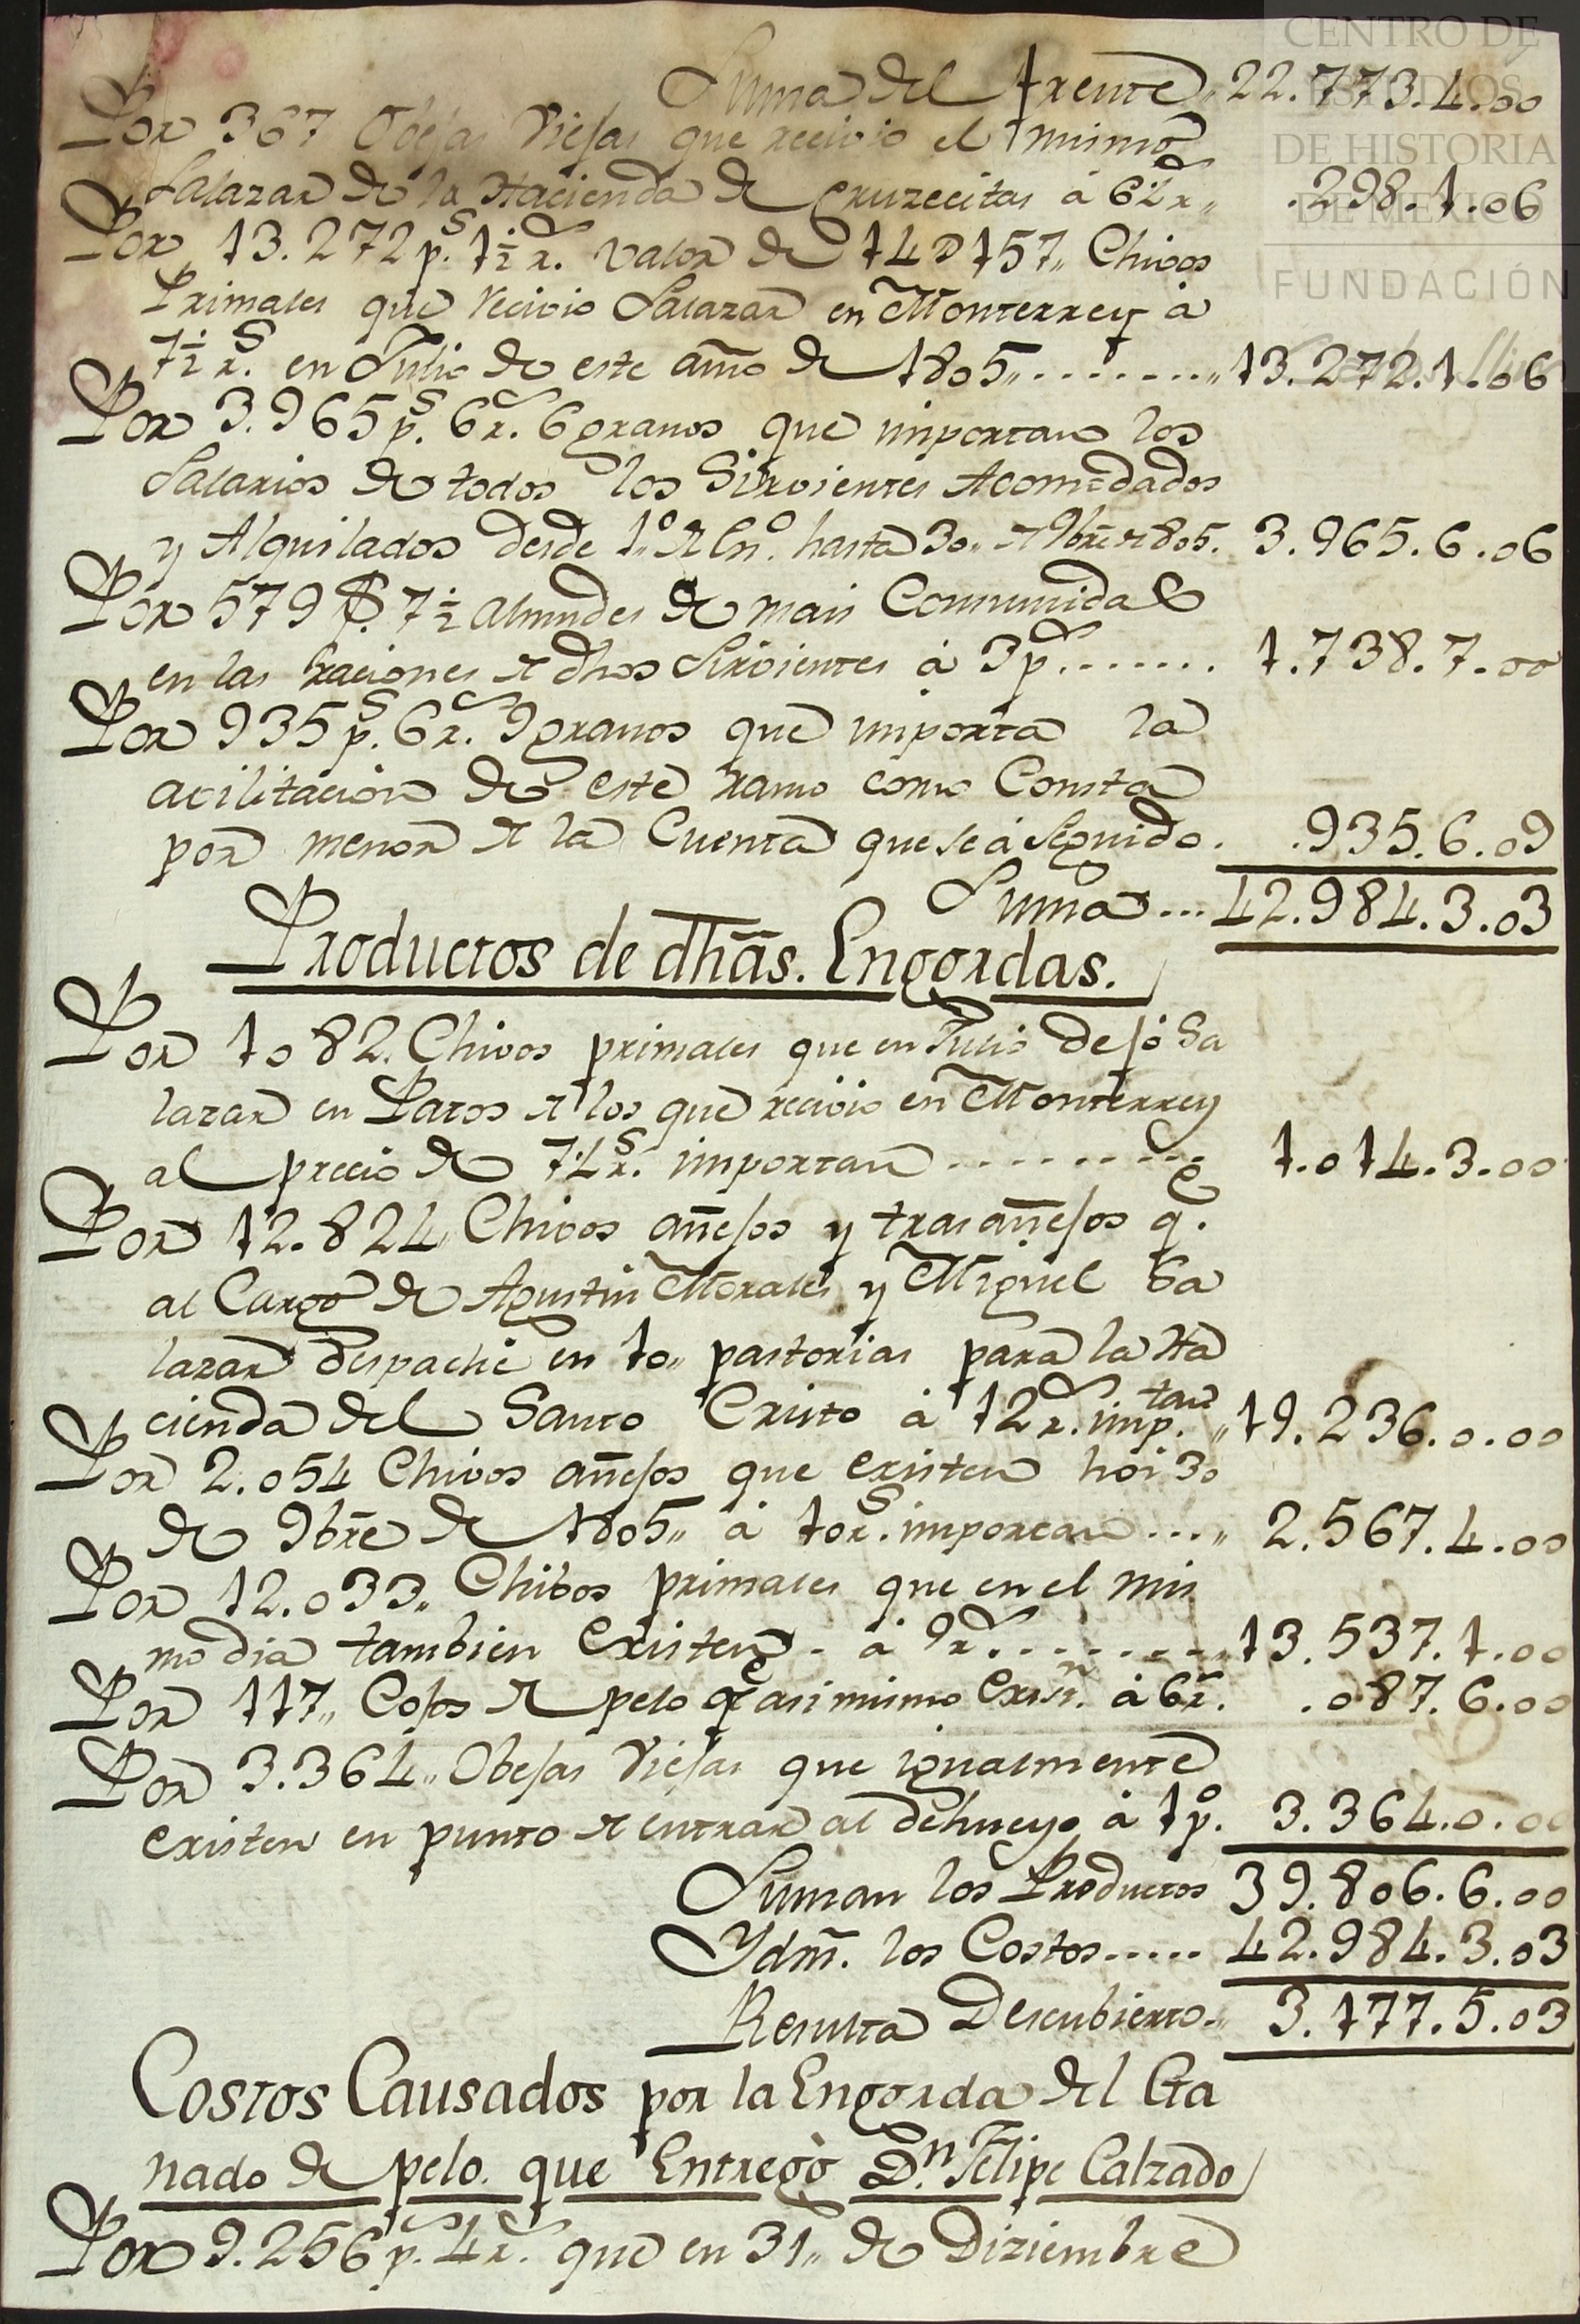 CENTRO DE
ESTUDIOS
DE HISTORIA
DE MEXICO
FUNDACIÓN
Suma del frente,, 22.773.4.00
Por 367 Obejas Viejas que recivio el mismo
Salazar de la Hacienda de Cruzecitas à 6½ r,, .298.1.06
Por 13.272 p.s 1½ r. valor de 14D157,, Chivos
Primales que recivio Salazar en Monterrey à
7½ r.s en Julio de este año de 1805,,........,, 13.272.1.06
Por 3.965 p.s 6 r. 6 granos que importan los
Salarios de todos los Sirvientes Acomodados
y Alquilados desde 1.º de En.º hasta 30,, de 9bre de 805. 3.965.6.06
Por 579 F. 7½ almudes de mais Consumidas
en las raciones de dhos Sirvientes à 3 p....... 1.738.7.00
Por 935 p.s 6 r. 9 granos que importa la
avilitacion de este ramo como Consta
por menor de la Cuenta que se à seguido. .935.6.09
Suma... 42.984.3.03
Productos de dhãs. Engordas.
Por 1082. Chivos primales que en Julio dejó Sa
lazar en Patos de los que recivio en Monterrey
al precio de 7½ r.s importan......... 1.014.3.00
Por 12.824,, Chivos añejos y trasañejos q.e
al Cargo de Agustin Morales y Miguel Sa
lazar despaché en 10,, pastorias para la Ha
cienda del Santo Cristo à 12 r. imp.tan ,, 19.236.0.00
Por 2.054 Chivos añejos que existen hoi 30
de 9bre de 1805,, à 10 r.s importan...,, 2.567.4.00
Por 12.033,, Chibos primales que en el mis
mo dia tambien existen - à 9 r.......,, 13.537.1.00
Por 117,, Cojos de pelo q.e asimismo Exis.n à 6 r. .087.6.00
Por 3.364,, Obejas Viejas que igualmente
existen en punto de entrar al dehueyo à 1 p.o 3.364.0.00
Suman los Productos 39.806.6.00
Ydm̃. los Costos..... 42.984.3.03
Resulta Descubierto.. 3.177.5.03
Costos Causados por la Engorda del Ga
nado de pelo que Entregò D.n Felipe Calzado
Por 9.256 p.s 4 r. que en 31,, de Diziembre